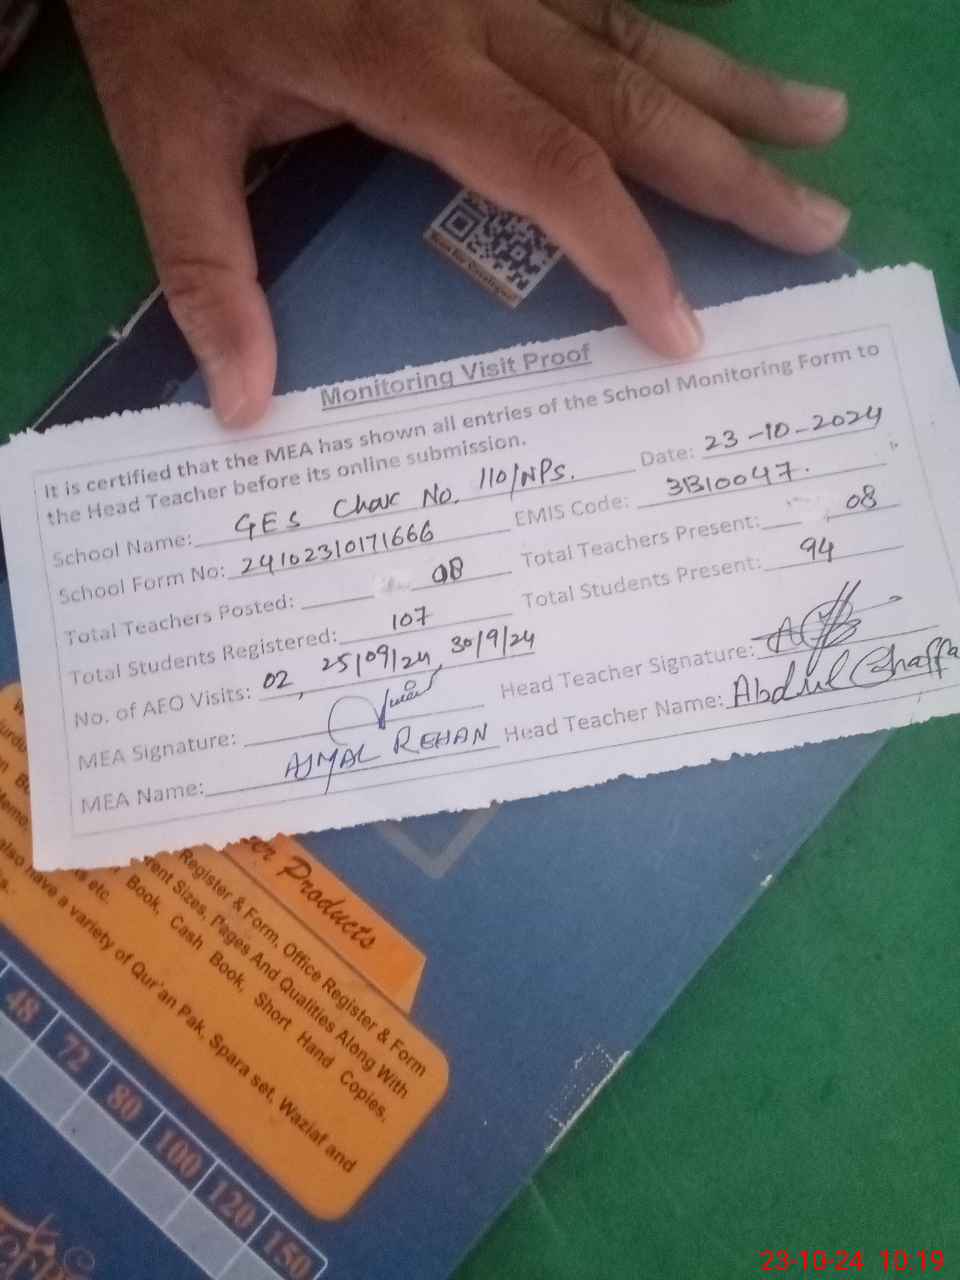 Monitoring Visit Proof
It is certified that the MEA has shown all entries of the School Monitoring Form to
the Head Teacher before its online submission.
School Name: GES Chak No. 110/NPs. Date: 23-10-2024
School Form No: 24102310171666 EMIS Code: 3B10047.
Total Teachers Posted: 08 Total Teachers Present: 08
Total Students Registered: 107 Total Students Present: 94
No. of AEO Visits: 02, 25/09/24, 30/9/24
MEA Signature: Head Teacher Signature:
MEA Name: AJMAL REHAN Head Teacher Name: Abdul Ghaffa
Products
Register & Form, Office Register & Form
Sizes, Pages And Qualities Along With
Book, Cash Book, Short Hand Copies,
etc.
also have a variety of Qur'an Pak, Spara set, Waziaf and
48 72 80 100 120 150
23-10-24 10:19